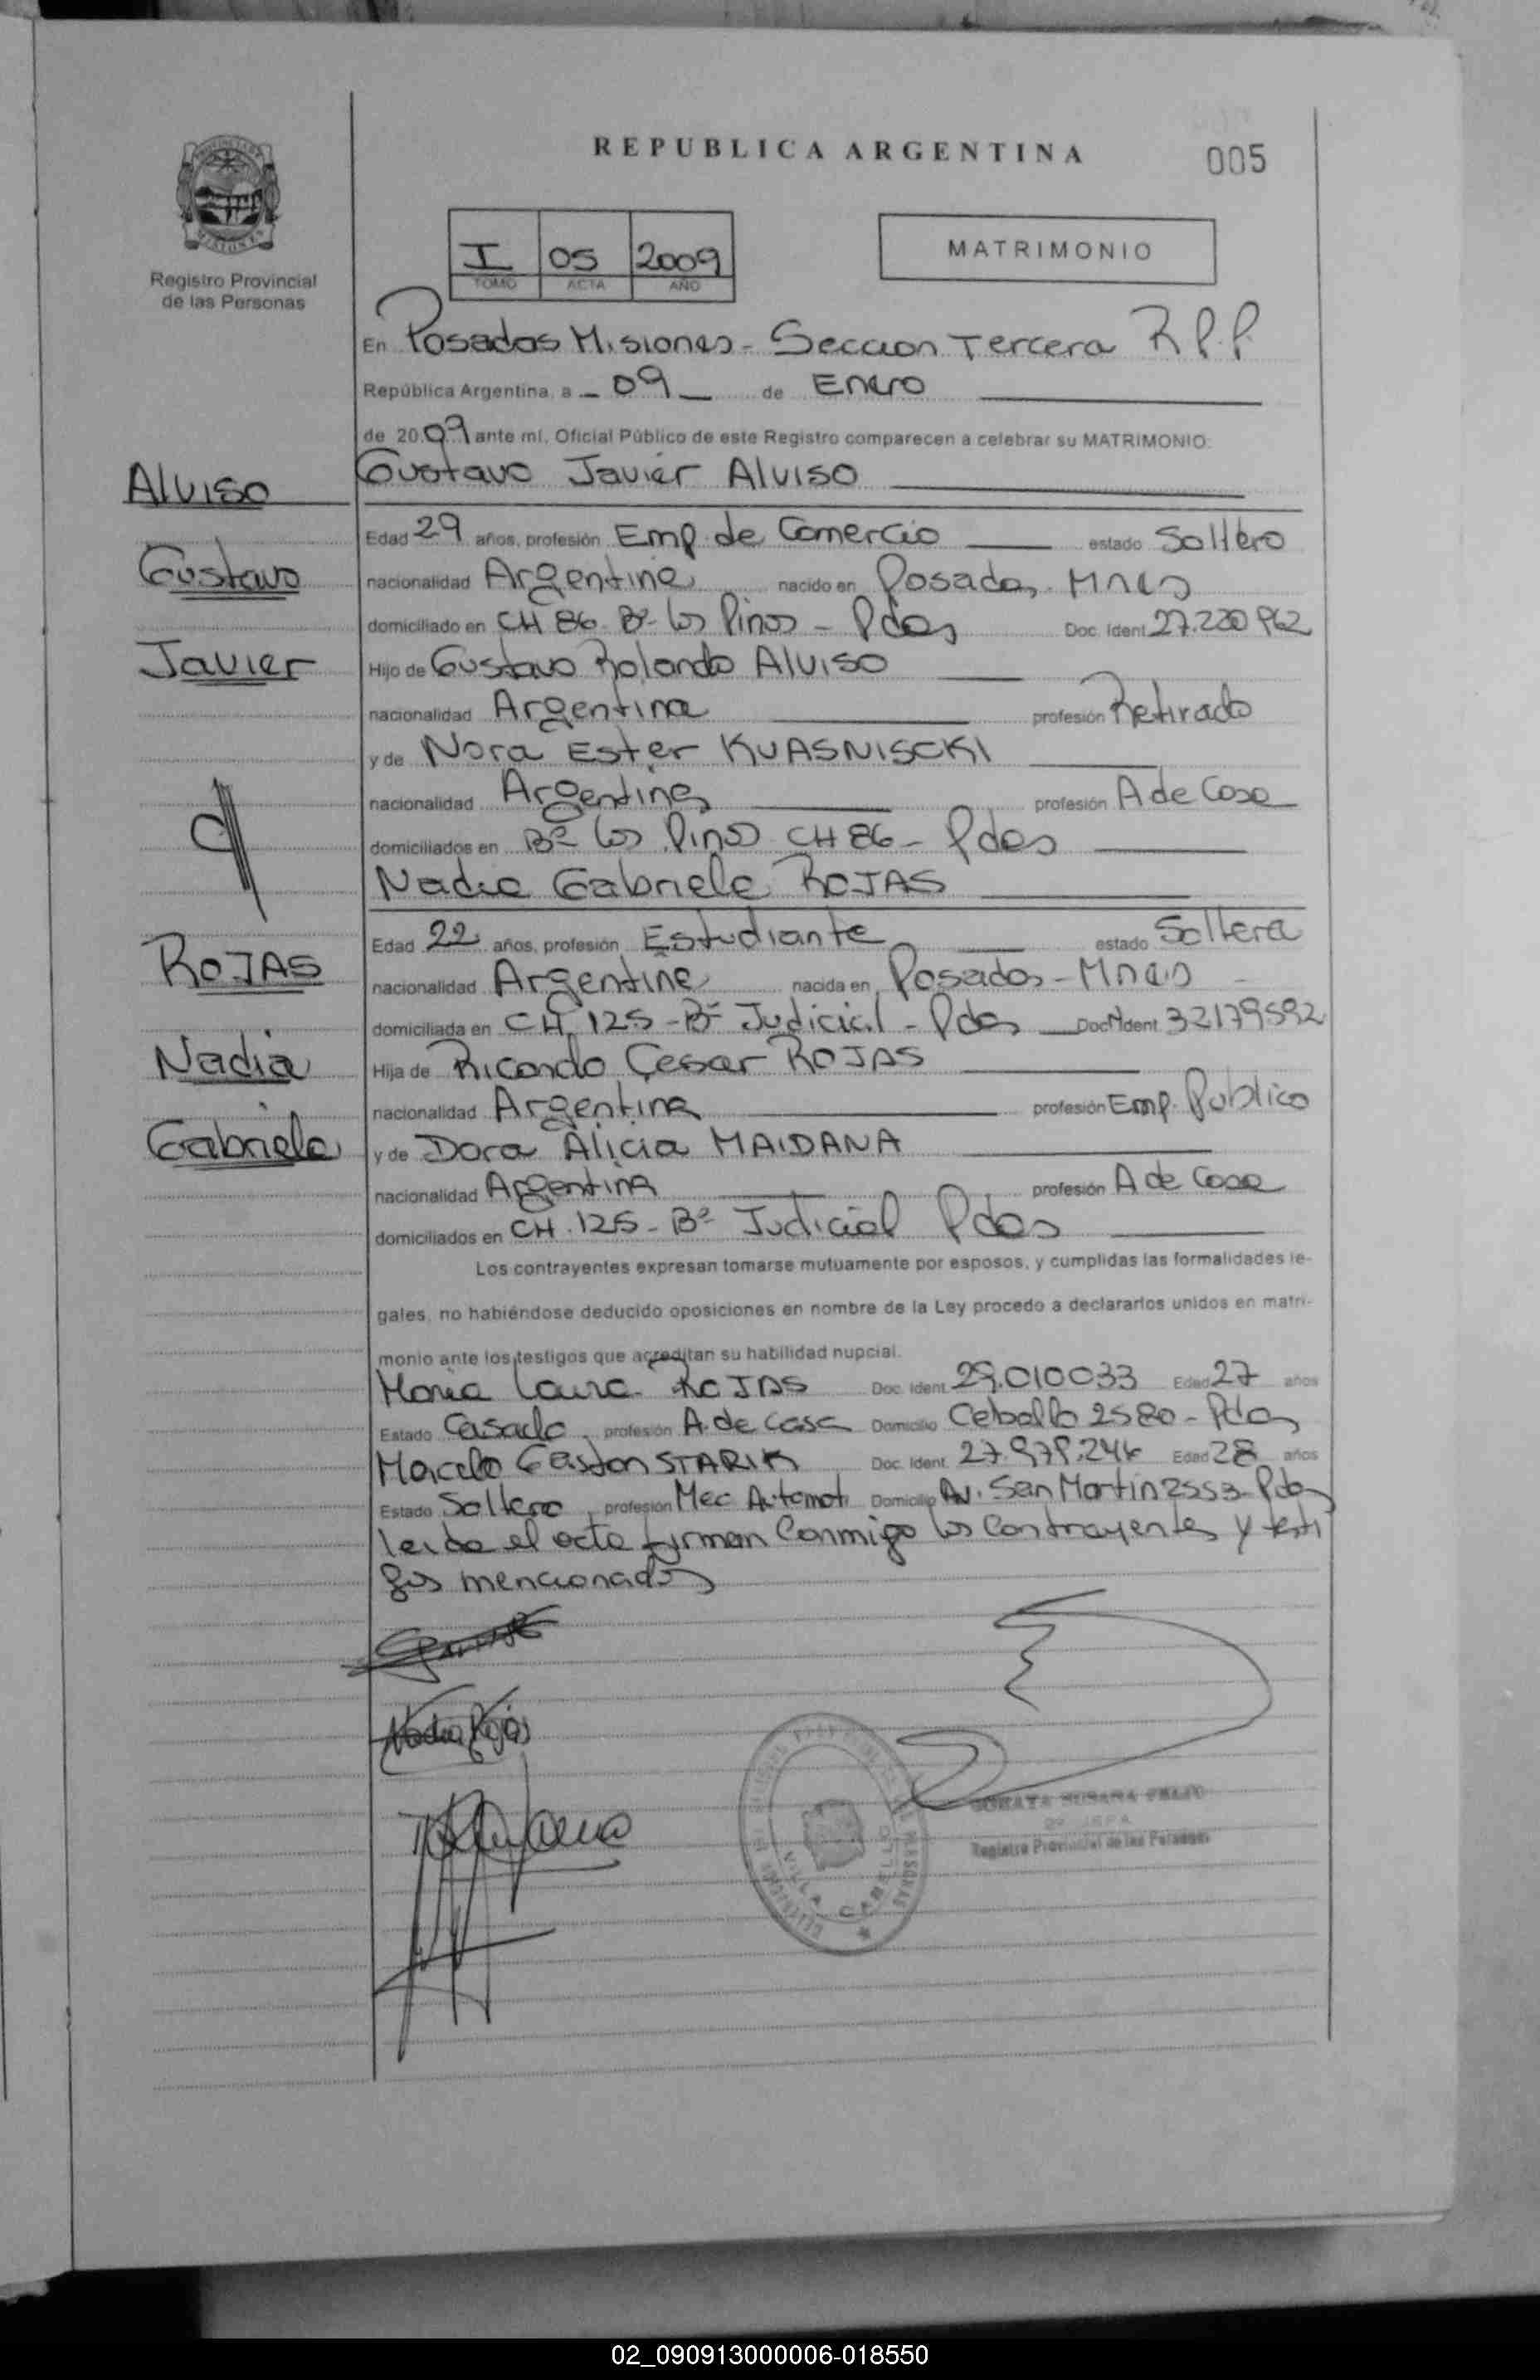 REPUBLICA ARGENTINA
005
Registro Provincial
de las Personas
I 05 2009
TOMO ACTA AÑO
MATRIMONIO
En Posadas Misiones - Seccion Tercera R.P.P.
República Argentina, a - 09 - de Enero
de 2009 ante mí, Oficial Público de este Registro comparecen a celebrar su MATRIMONIO:
Gustavo Javier Alviso
Alviso
Gustavo
Javier
Edad 29 años, profesión Emp. de Comercio estado Soltero
nacionalidad Argentina nacido en Posadas - Mnes
domiciliado en CH 86 - Bº los Pinos - Pdas Doc. Ident.
Hijo de Gustavo Rolando Alviso
nacionalidad Argentina profesión Retirado
y de Nora Ester KUASNISCKI
nacionalidad Argentina profesión A de Casa
domiciliados en Bº los Pinos CH 86 - Pdas
Nadia Gabriela ROJAS
ROJAS
Nadia
Gabriela
Edad 22 años, profesión Estudiante estado Soltera
nacionalidad Argentina nacida en Posadas - Mnes -
domiciliada en CH. 125 - Bº Judicial - Pdas Doc. Ident. 32179592
Hija de Ricardo Cesar ROJAS
nacionalidad Argentina profesión Emp. Publico
y de Dora Alicia MAIDANA
nacionalidad Argentina profesión A de Casa
domiciliados en CH. 125 - Bº Judicial Pdas
Los contrayentes expresan tomarse mutuamente por esposos, y cumplidas las formalidades le-
gales, no habiéndose deducido oposiciones en nombre de la Ley procedo a declararlos unidos en matri-
monio ante los testigos que acreditan su habilidad nupcial.
Maria Laura ROJAS Doc. Ident. 29.010033 Edad 27 años
Estado Casada, profesión A. de casa Domicilio Ceballo 2580 - Pdas
Marcelo Gaston STARIK Doc. Ident. Edad 28 años
Estado Soltero, profesión Mec Automot. Domicilio Av. San Martin 2553 - Pdas
leida el acta firman Conmigo los Contrayentes y testi
gos mencionados
Nadia Rojas
VILLA CABELLO
Registro Provincial de las Personas
02_090913000006-018550